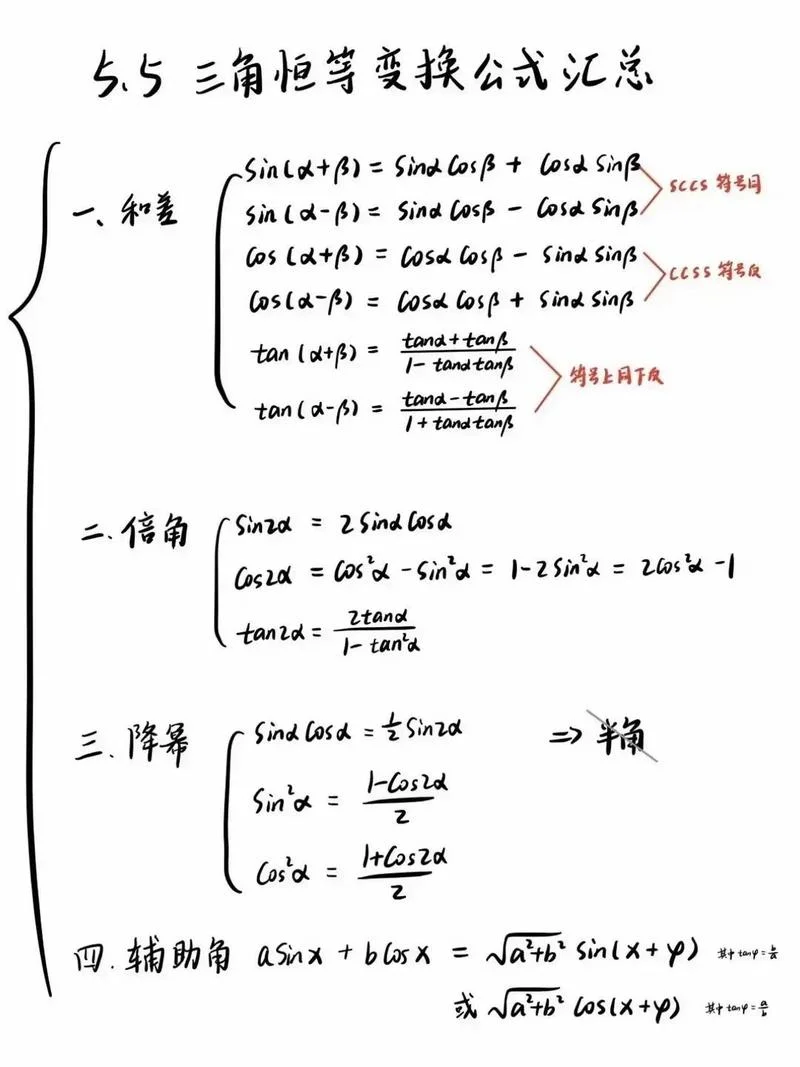 5.5 三角恒等变换公式汇总
一、和差
sin(α+β) = sinα cosβ + cosα sinβ
sin(α-β) = sinα cosβ - cosα sinβ
SCCS 符号同
cos(α+β) = cosα cosβ - sinα sinβ
cos(α-β) = cosα cosβ + sinα sinβ
CCSS 符号反
tan(α+β) = (tanα + tanβ)/(1 - tanα tanβ)
tan(α-β) = (tanα - tanβ)/(1 + tanα tanβ)
符号上同下反
二.倍角
sin2α = 2 sinα cosα
cos2α = cos²α - sin²α = 1-2 sin²α = 2cos²α -1
tan2α = 2tanα/(1- tan²α)
三.降幂
sinα cosα = ½ sin2α ⇒ 半角
sin²α = (1-cos2α)/2
cos²α = (1+cos2α)/2
四.辅助角 a sin x + b cos x = √(a²+b²) sin(x+φ) 其中 tanφ = b/a
或 √(a²+b²) cos(x+φ) 其中 tanφ = a/b